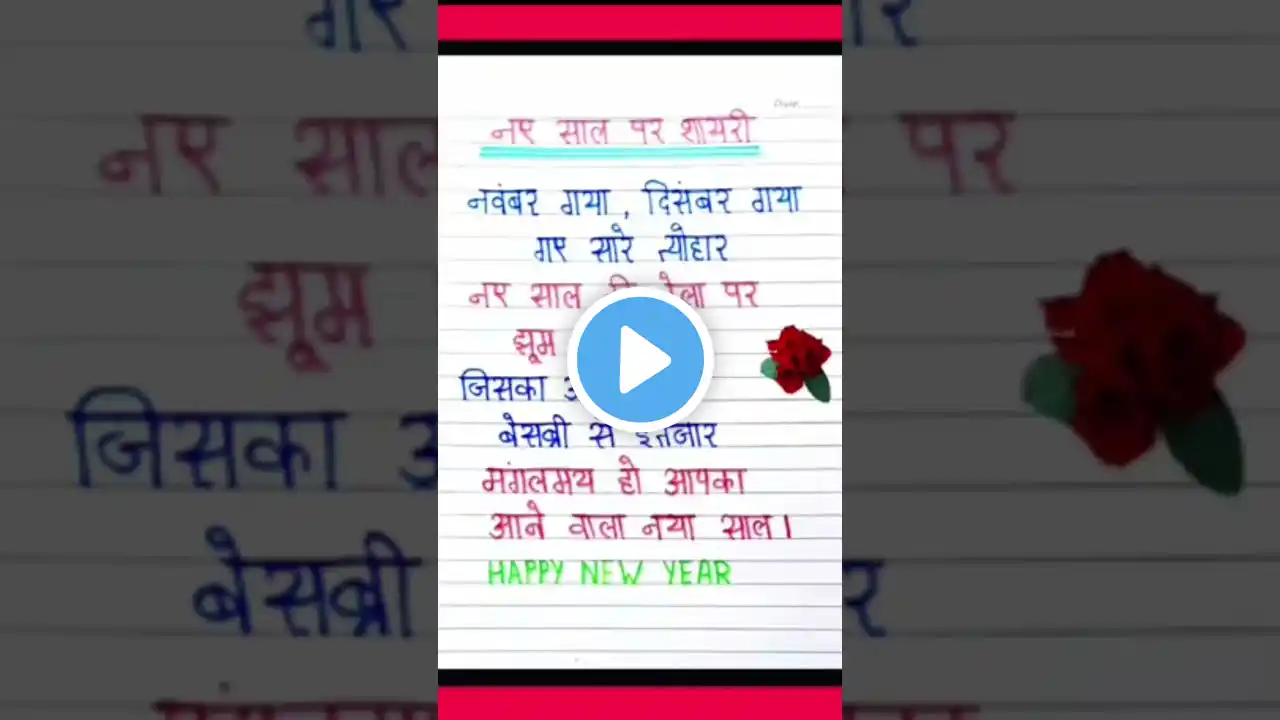 नए साल पर शायरी
नवंबर गया, दिसंबर गया
गए सारे त्योहार
नए साल पर
झूम
जिसका
बेसब्री से इन्तजार
मंगलमय हो आपका
आने वाला नया साल।
HAPPY NEW YEAR